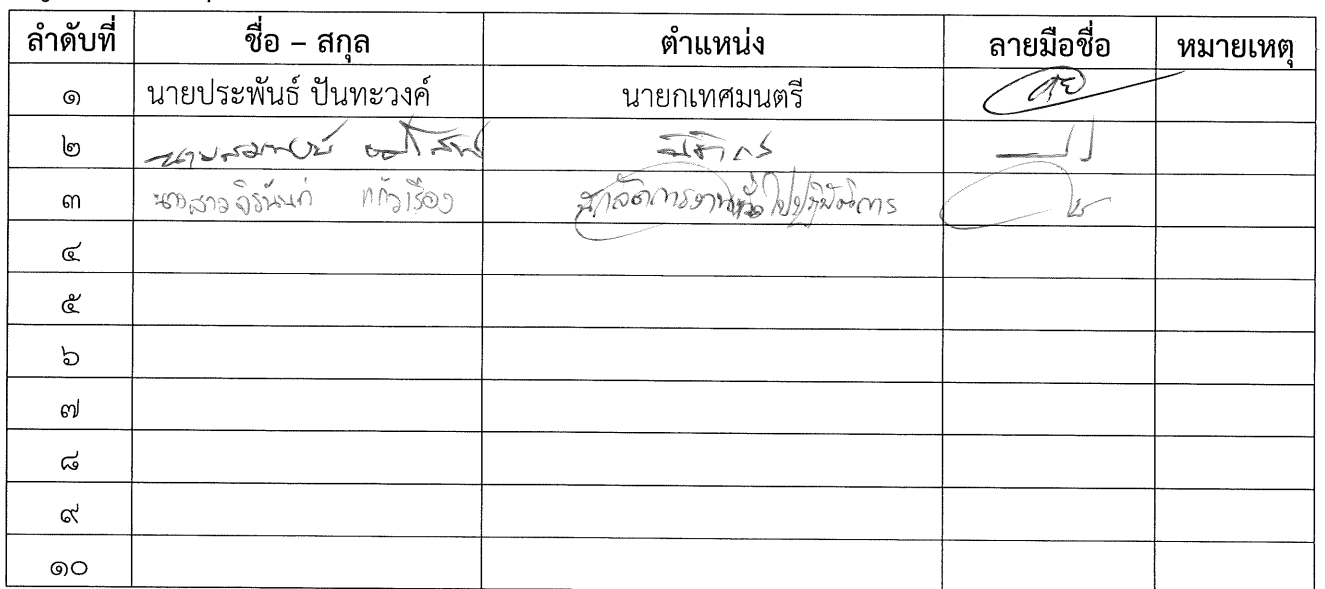 ลำดับที่ ชื่อ – สกุล ตำแหน่ง ลายมือชื่อ หมายเหตุ
๑ นายประพันธ์ ปันทะวงค์ นายกเทศมนตรี
๒ นิติกร
๓ นางสาวจิรนันท์ แก้วเรือง นักจัดการงานทั่วไปปฏิบัติการ
๔
๕
๖
๗
๘
๙
๑๐